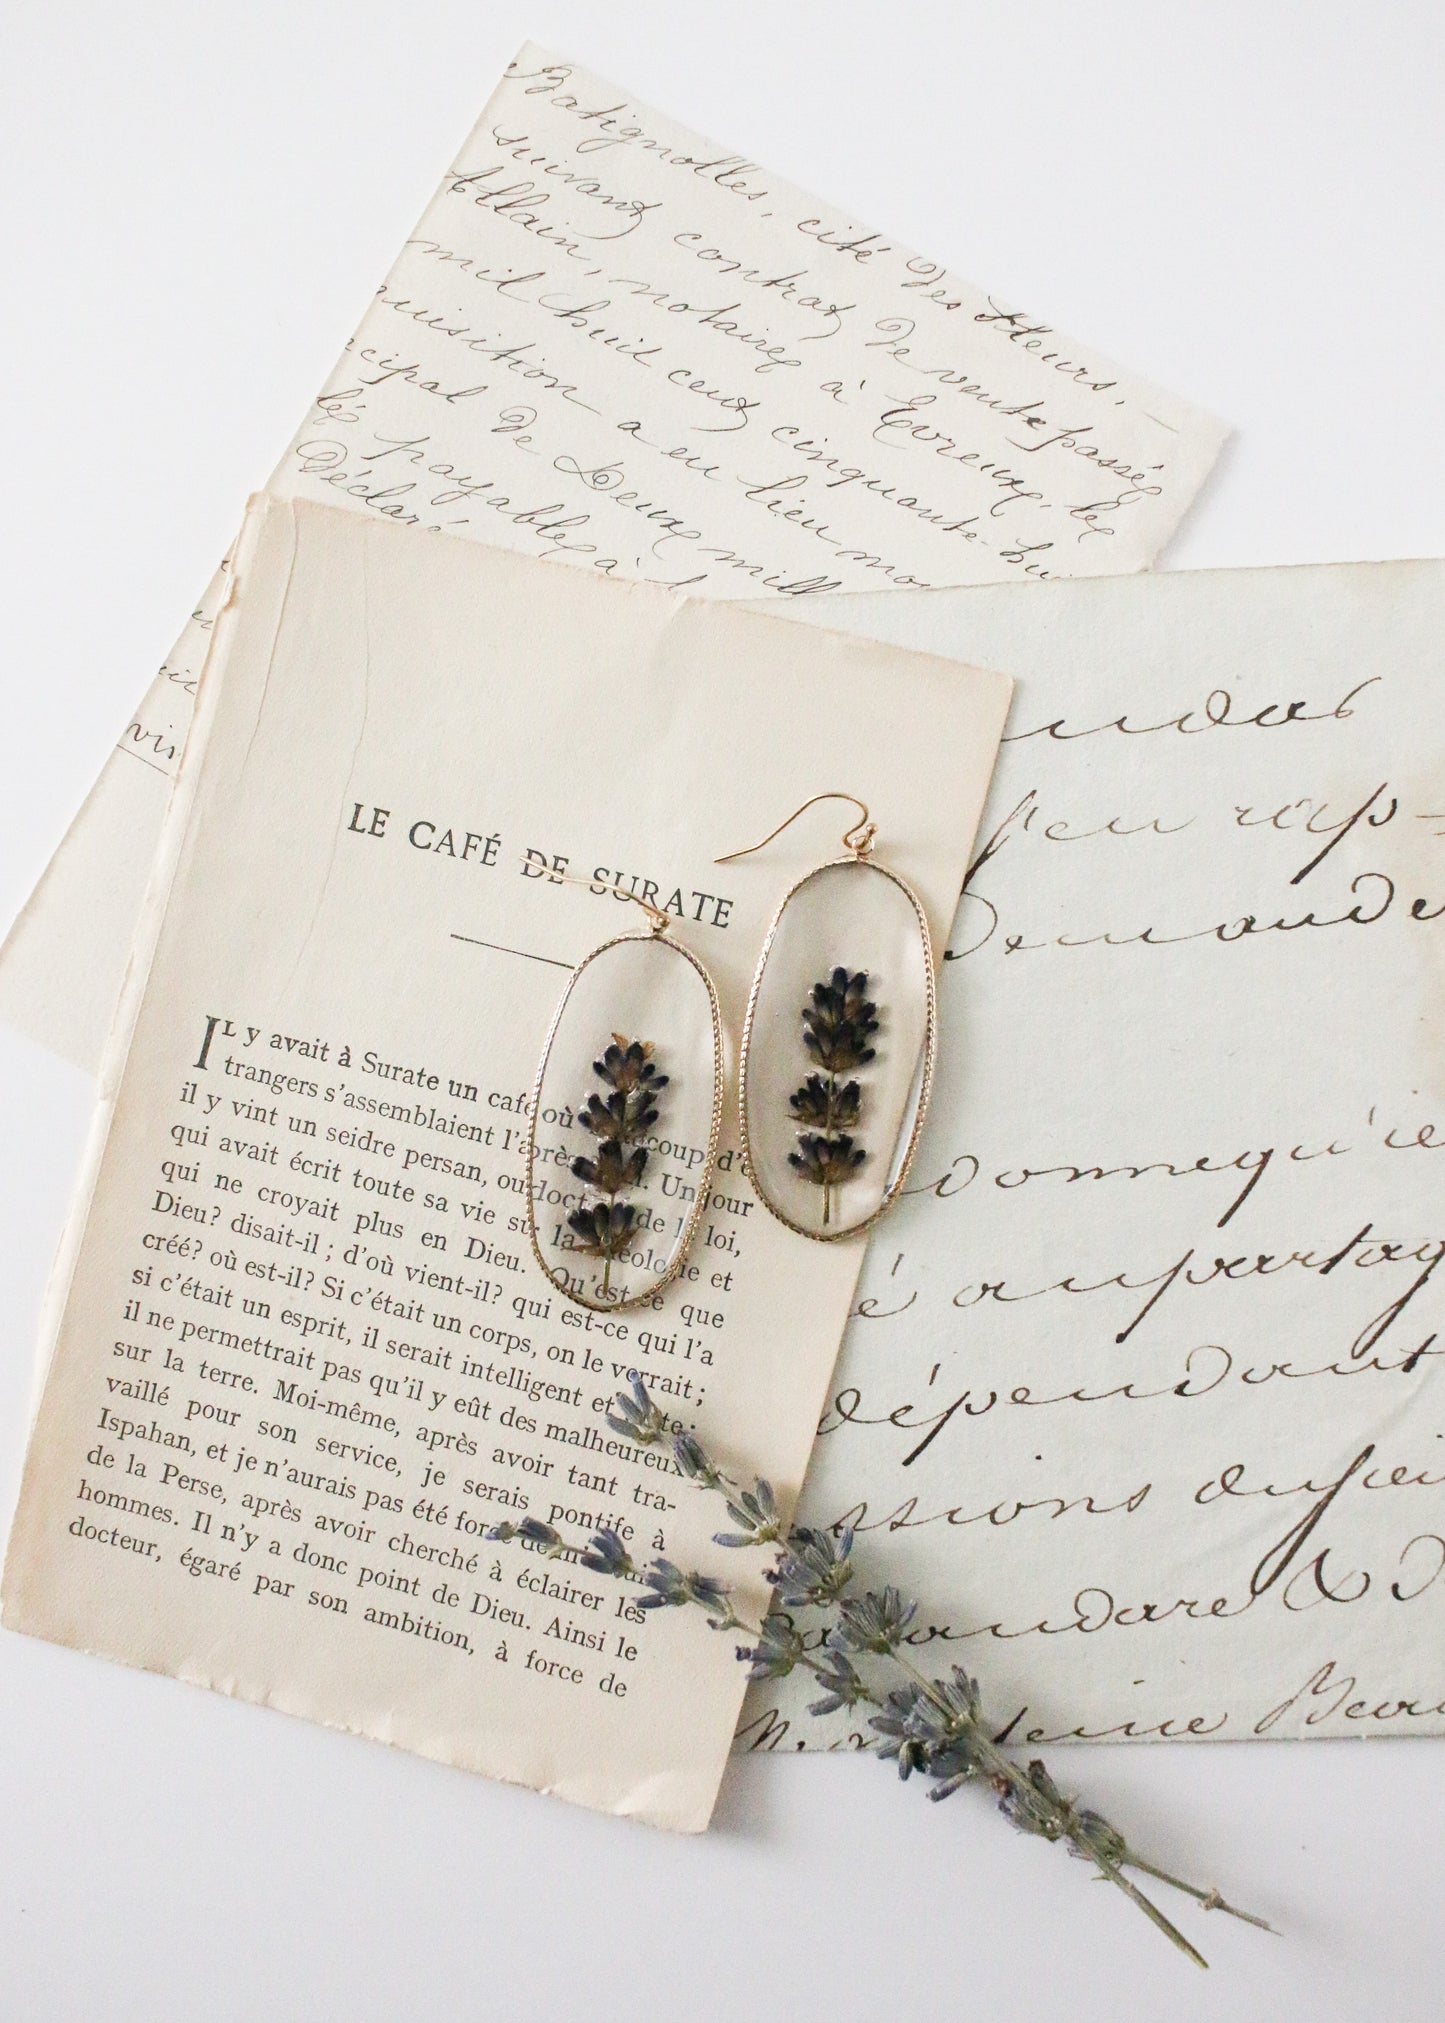 Batignolles, cité des fleurs. —
suivant contrat de vente passé
Allain, notaire à Evreux, le
mil huit cent cinquante-hui
uisition a eu lieu mo
cipal de Deux mill
lé payable à l
Déclar
vis
LE CAFÉ DE SURATE
IL y avait à Surate un café où beaucoup d'é
trangers s'assemblaient l'après Un jour
il y vint un seidre persan, ou doct de la loi,
qui avait écrit toute sa vie sur la théologie et
qui ne croyait plus en Dieu. Qu'est-ce que
Dieu? disait-il; d'où vient-il? qui est-ce qui l'a
créé? où est-il? Si c'était un corps, on le verrait;
si c'était un esprit, il serait intelligent et te;
il ne permettrait pas qu'il y eût des malheureux
sur la terre. Moi-même, après avoir tant tra-
vaillé pour son service, je serais pontife à
Ispahan, et je n'aurais pas été for de
de la Perse, après avoir cherché à éclairer les
hommes. Il n'y a donc point de Dieu. Ainsi le
docteur, égaré par son ambition, à force de
j'en rap-
Demande
donnequ'ie
é au partag
dépendant
ssions du